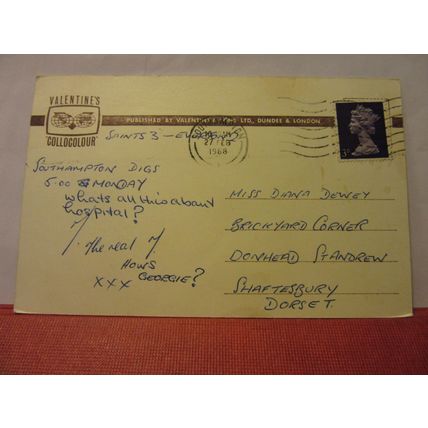 VALENTINE'S
"COLLOCOLOUR"
PUBLISHED BY VALENTINE & SONS LTD., DUNDEE & LONDON
SAINTS 3 –
SOUTHAMPTON DIGS
5.00 MONDAY
whats all this about
hospital?
The real
HOWS
GEORGIE?
XXX
27 FEB
1968
MISS DIANA DEWEY
BRICKYARD CORNER
DONHEAD STANDREW
SHAFTESBURY
DORSET.